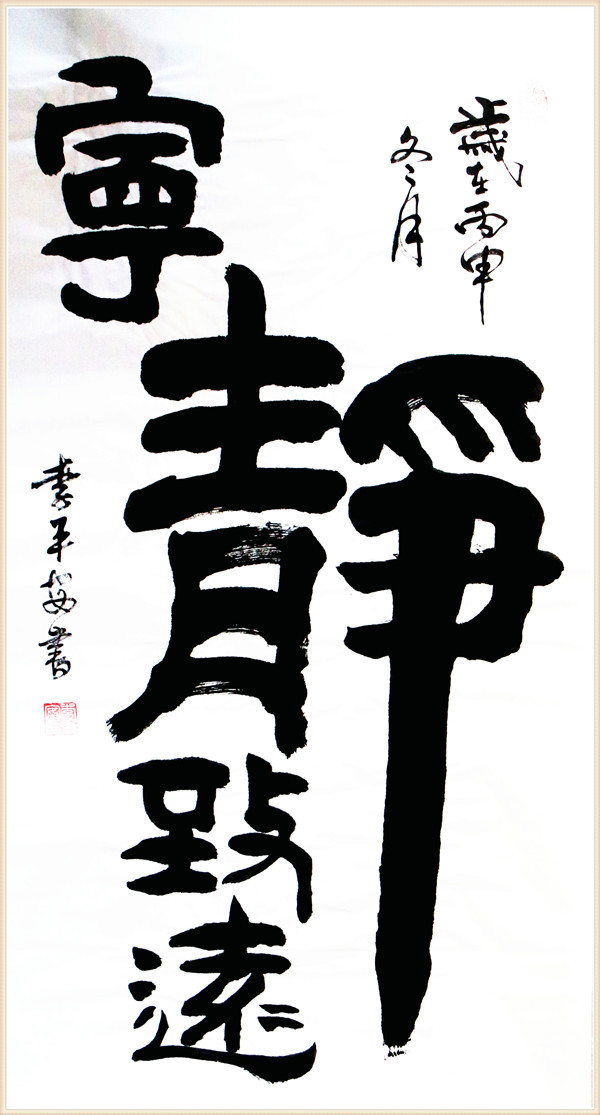 歲在丙申
冬月
寧靜致遠
李平安書